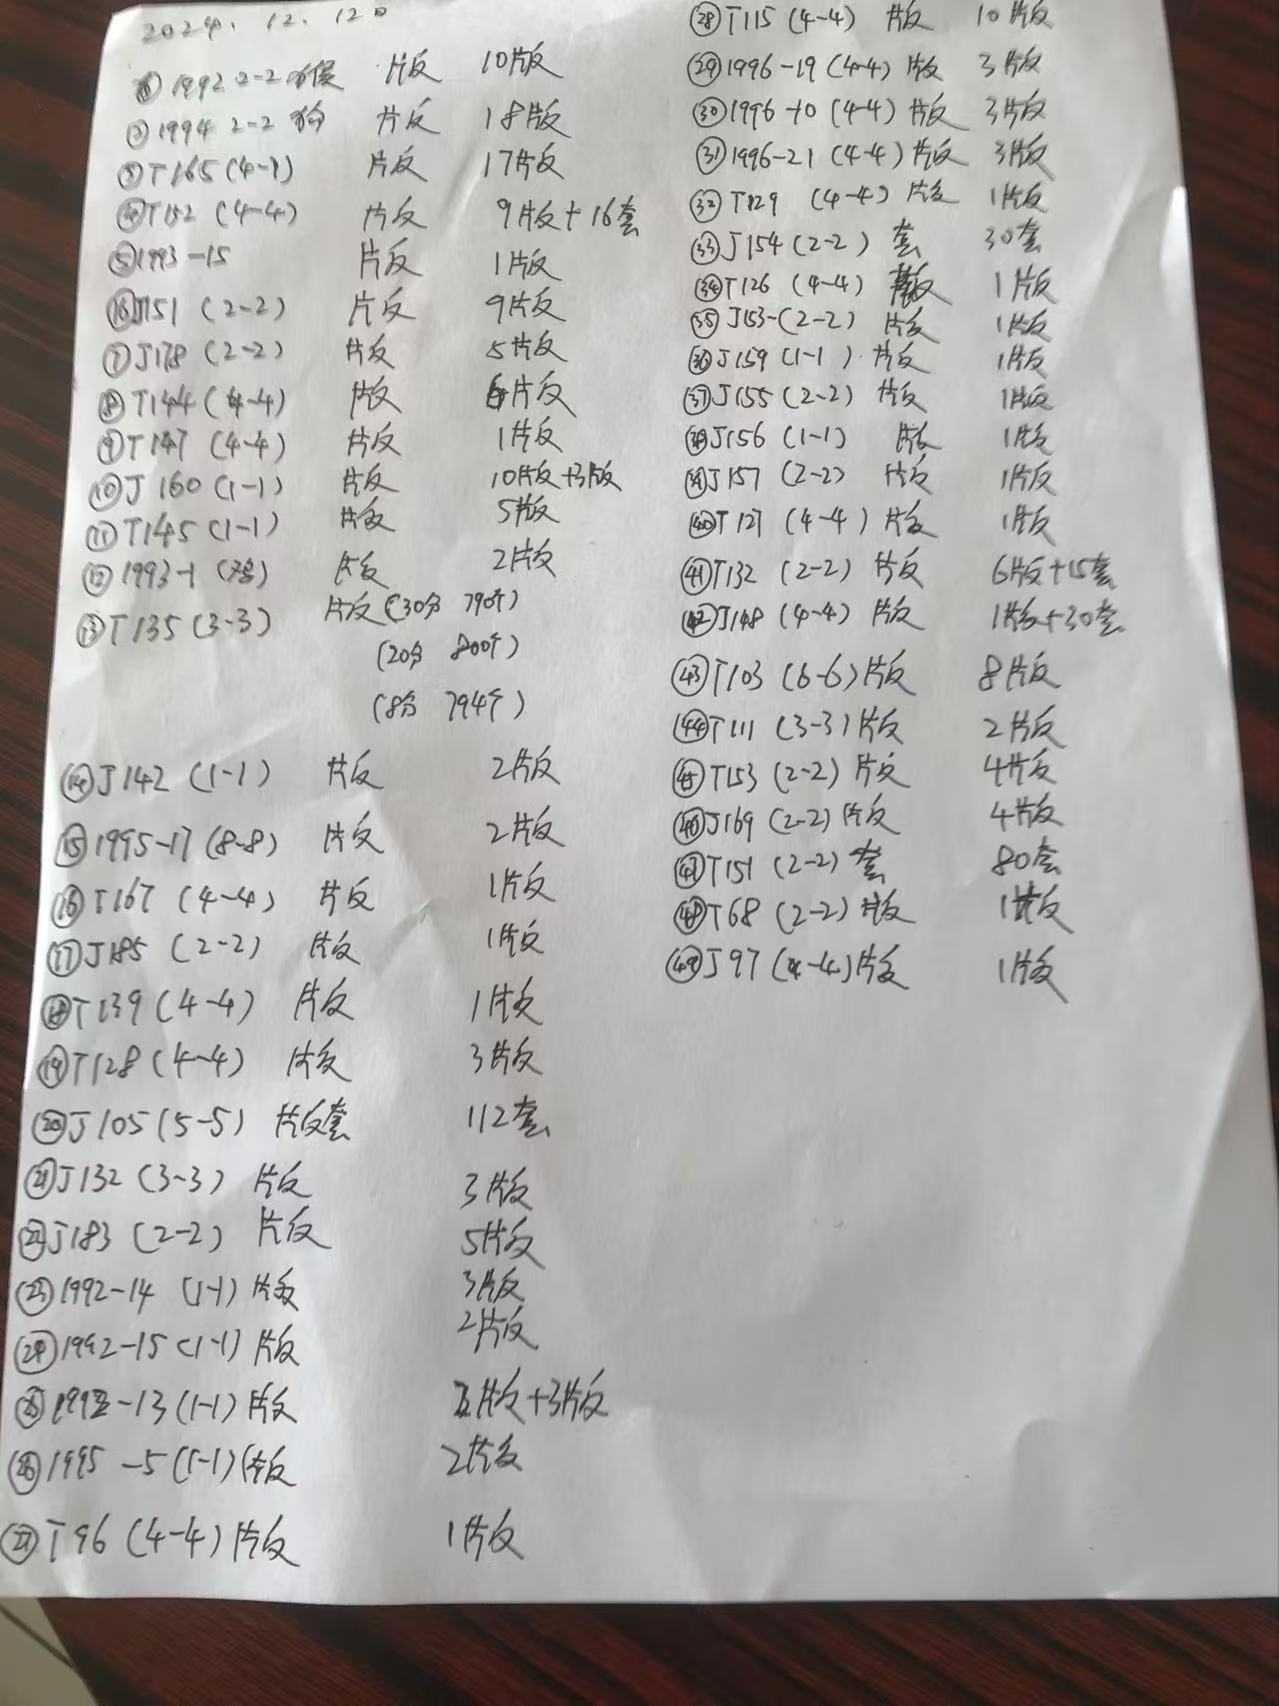 2024.12.12日
① 1992 2-2 猴 片版 10版
② 1994 2-2 狗 片版 18版
③ T165 (4-1) 片版 17版
④ T152 (4-4) 片版 9版+16套
⑤ 1993-15 片版 1版
⑥ J151 (2-2) 片版 9版
⑦ J178 (2-2) 片版 5版
⑧ T144 (4-4) 片版 6版
⑨ T147 (4-4) 片版 1版
⑩ J160 (1-1) 片版 10版+3版
⑪ T145 (1-1) 片版 5版
⑫ 1993-1 (鸡) 片版 2版
⑬ T135 (3-3) 片版 (30分 790个)
(20分 800个)
(8分 794个)
⑭ J142 (1-1) 片版 2版
⑮ 1995-17 (8-8) 片版 2版
⑯ T167 (4-4) 片版 1版
⑰ J185 (2-2) 片版 1版
⑱ T139 (4-4) 片版 1版
⑲ T128 (4-4) 片版 3版
⑳ J105 (5-5) 片版套 112套
㉑ J132 (3-3) 片版 3版
㉒ J183 (2-2) 片版 5版
㉓ 1992-14 (1-1) 片版 3版
㉔ 1992-15 (1-1) 片版 2版
㉕ 1992-13 (1-1) 片版 版+3版
㉖ 1995-5 (1-1) 片版 2版
㉗ T96 (4-4) 片版 1版
㉘ T115 (4-4) 片版 10版
㉙ 1996-19 (4-4) 片版 3版
㉚ 1996-10 (4-4) 片版 3版
㉛ 1996-21 (4-4) 片版 3版
㉜ T129 (4-4) 片版 1版
㉝ J154 (2-2) 套 30套
㉞ T126 (4-4) 版 1版
㉟ J153-(2-2) 片版 1版
㊱ J159 (1-1) 片版 1版
㊲ J155 (2-2) 片版 1版
㊳ J156 (1-1) 片版 1版
㊴ J157 (2-2) 片版 1版
㊵ T127 (4-4) 片版 1版
㊶ T132 (2-2) 片版 6版+15套
㊷ J148 (4-4) 片版 1版+30套
㊸ T103 (6-6) 片版 8版
㊹ T111 (3-3) 片版 2版
㊺ T153 (2-2) 片版 4版
㊻ J169 (2-2) 片版 4版
㊼ T151 (2-2) 套 80套
㊽ T68 (2-2) 片版 1版
㊾ J97 (4-4) 片版 1版